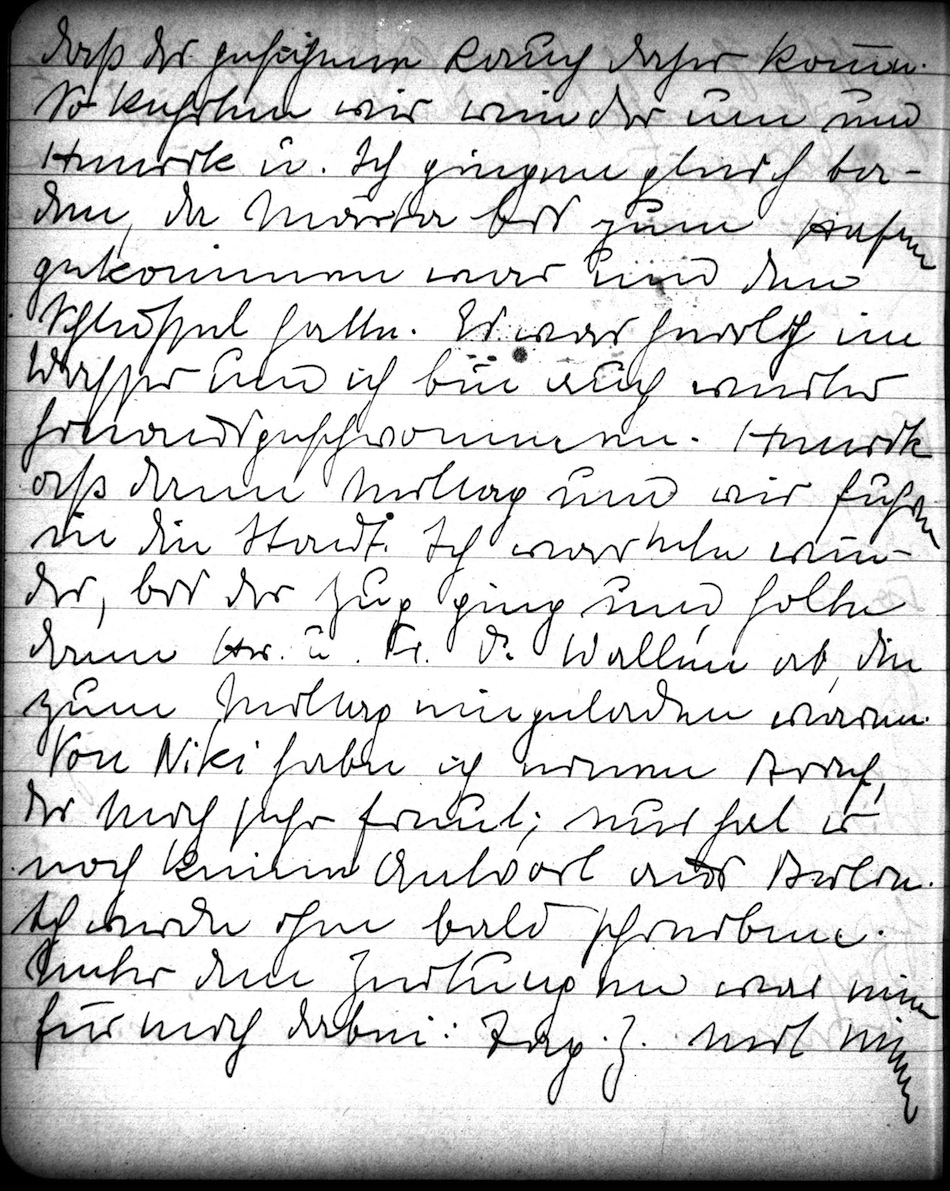 daß der gesehene Rauch daher komme.
So kehrten wir wieder um und
Henrik u. Ich gingen gleich ba-
den, da Märta bis zum Hafen
gekommen war und den
Schlüssel hatte. Es war herrlich im
Wasser und ich bin auch weiter
hinausgeschwommen. Henrik
aß dann Mittag und wir fuhren
in die Stadt. Ich wartete wie-
der, bis der Zug ging und holte
dann Hr. u. Fr. D. Wallin ab, die
zum Mittag eingeladen waren.
Von Niki habe ich einen Brief,
der mich sehr freut; nur hat er
noch keine Antwort aus Berlin.
Ich werde ihm bald schreiben.
Unter den Zeitungen war eine
für mich dabei: Tag. Z. mit einem